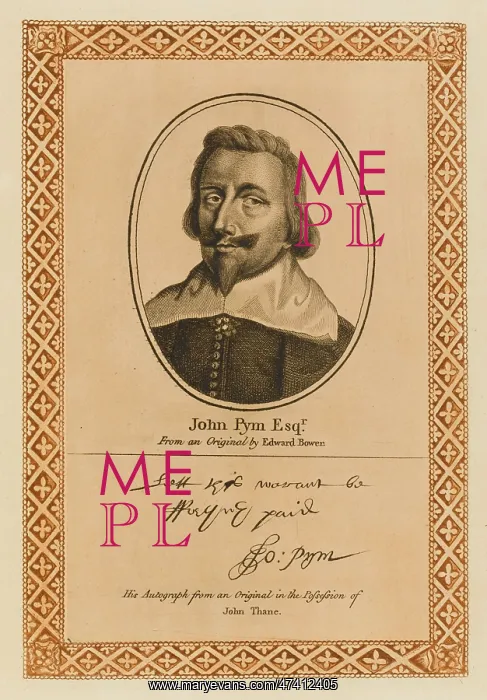 ME
PL
John Pym Esqr
From an Original by Edward Bower
ME
PL
Lett this warrant be
paid
Jo: Pym
His Autograph from an Original in the Possession of
John Thane.
www.maryevans.com/47412405